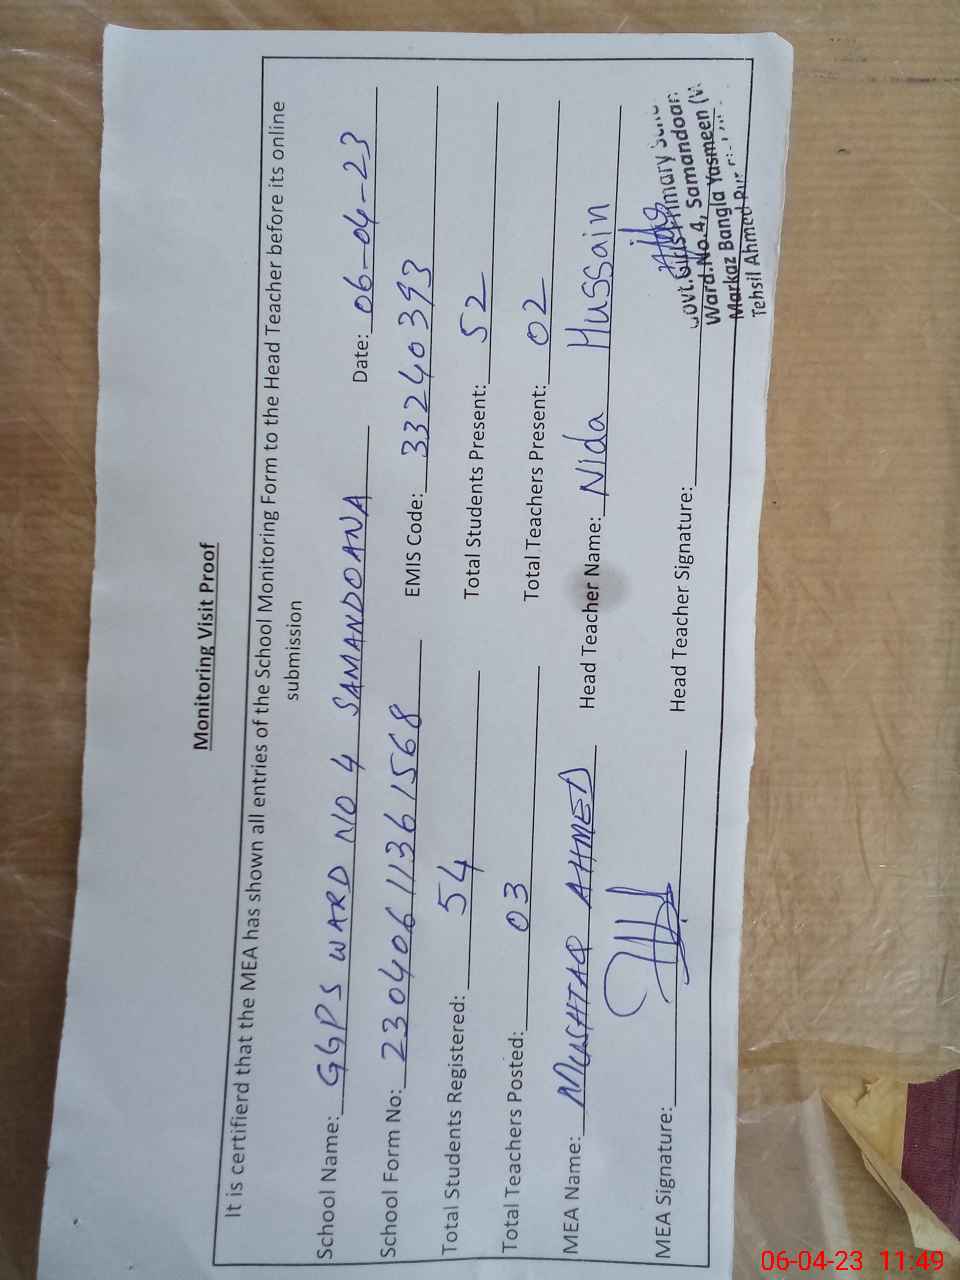 Monitoring Visit Proof
It is certifierd that the MEA has shown all entries of the School Monitoring Form to the Head Teacher before its online
submission
School Name: GGPS WARD NO 4 SAMANDOANA Date: 06-04-23
School Form No: 23040611361568 EMIS Code: 33240393
Total Students Registered: 54 Total Students Present: 52
Total Teachers Posted: 03 Total Teachers Present: 02
MEA Name: MUSHTAQ AHMED Head Teacher Name: Nida Hussain
MEA Signature: Head Teacher Signature:
Govt. Girls Primary
Ward.No.4, Samandoan
Markaz Bangla Yasmeen
Tehsil Ahmed
06-04-23 11:49